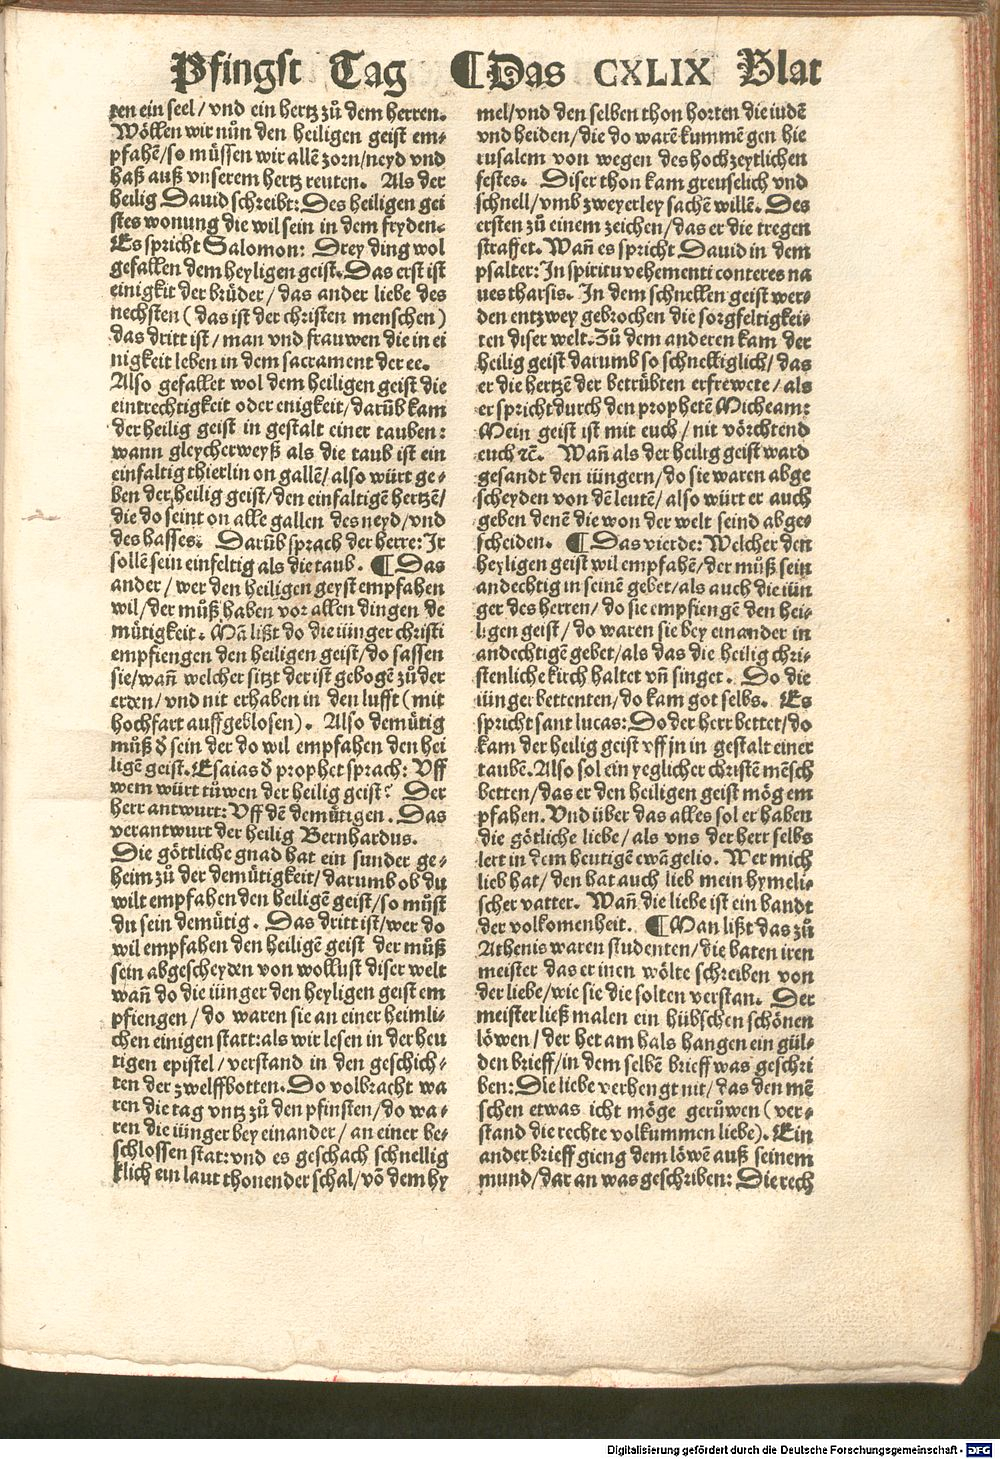 Pfingst Tag ¶Das CXLIX Blat
ren ein seel/ vnd ein hertz zů dem herren.
Wöllen wir nůn den heiligen geist em⸗
pfahē/so müssen wir allē zorn/neyd vnd
haß auß vnserem hertz reuten. Als der
heilig Dauid schreibt: Des heiligen gei
stes wonung die wil sein in dem fryden.
Es spricht Salomon: Drey ding wol
gefallen dem heyligen geist. Das erst ist
einigkit der brüder/ das ander liebe des
nechsten (das ist der christen menschen)
das dritt ist/ man vnd frauwen die in ei
nigkeit leben in dem sacrament der ee.
Also gefallet wol dem heiligen geist die
eintrechtigkeit oder enigkeit/darūb kam
der heilig geist in gestalt einer tauben:
wann gleycherweyß als die taub ist ein
einfaltig thierlin on gallē/ also würt ge⸗
ben der heilig geist/den einfaltigē hertzē/
die do seint on alle gallen des neyd/vnd
des hasses. Darūb sprach der herre: Ir
sollē sein einfeltig als die taub. ¶Das
ander/ wer den heiligen geyst empfahen
wil/der můß haben vor allen dingen de
mütigkeit. Mā lißt do die iünger christi
empfiengen den heiligen geist/do sassen
sie/wañ welcher sitzt der ist gebogē zů der
erden/ vnd nit erhaben in den lufft (mit
hochfart auffgeblosen). Also demütig
můß ð sein der do wil empfahen den hei
ligē geist. Esaias ð prophet sprach: Vff
wem würt růwen der heilig geist? Der
herr antwurt: Vff dē demütigen. Das
verantwurt der heilig Bernhardus.
Die göttliche gnad hat ein sunder ge⸗
heim zů der demütigkeit/ darumb ob du
wilt empfahen den heiligē geist/so můst
du sein demütig. Das dritt ist/wer do
wil empfahen den heiligē geist der můß
sein abgescheyden von wollust diser welt
wañ do die iünger den heyligen geist em
pfiengen/ do waren sie an einer heimli⸗
chen einigen statt:als wir lesen in der heu
tigen epistel/ verstand in den geschich⸗
ten der zwelffbotten. Do volbracht wa
ren die tag vntz zů den pfinsten/do wa⸗
ren die iünger bey einander/ an einer be⸗
schlossen stat: vnd es geschach schnellig
klich ein laut thonender schal/ vō dem hy
mel/vnd den selben thon horten die iudē
vnd heiden/die do warē kummē gen hie
rusalem von wegen des hochzeytlichen
festes. Diser thon kam greuselich vnd
schnell/ vmb zweyerley sachē willē. Des
ersten zů einem zeichen/das er die tregen
straffet. Wañ es spricht Dauid in dem
psalter: In spiritu vehementi conteres na
ues tharsis. In dem schnellen geist wer⸗
den entzwey gebrochen die sorgfeltigkei⸗
ten diser welt. Zů dem anderen kam der
heilig geist darumb so schnelliglich/ das
er die hertzē der betrübten erfrewete/ als
er spricht durch den prophetē Micheam:
Mein geist ist mit euch/ nit vörchtend
euch ⁊č. Wañ als der heilig geist ward
gesandt den iüngern/do sie waren abge
scheyden von dē leutē/ also würt er auch
geben denē die won der welt seind abge⸗
scheiden. ¶Das vierde: Welcher den
heyligen geist wil empfahen/der můß sein
andechtig in seinē gebet/als auch die iün
ger des herren/ do sie empfiengē den hei⸗
ligen geist/ do waren sie bey einander in
andechtigē gebet/als das die heilig chri⸗
stenliche kirch haltet vñ singet. Do die
iünger bettenten/do kam got selbs. Es
spricht sant lucas: Do der herr bettet/do
kam der heilig geist vff jn in gestalt einer
taubē. Also sol ein yeglicher christē mēsch
betten/das er den heiligen geist mög em
pfahen. Vnd über das alles sol er haben
die götliche liebe/ als vns der herr selbs
lert in dem heutigē ewāgelio. Wer mich
lieb hat/ den hat auch lieb mein hymeli⸗
scher vatter. Wañ die liebe ist ein bandt
der volkomenheit. ¶Man lißt das zů
Athenis waren studenten/die baten iren
meister das er inen wölte schreiben von
der liebe/wie sie die solten verstan. Der
meister ließ malen ein hübschen schönen
löwen/ der het am hals hangen ein gül⸗
den brieff/in dem selbē brieff was geschri
ben: Die liebe verhengt nit/ das den mē
schen etwas icht möge gerüwen (ver⸗
stand die rechte volkummen liebe). Ein
ander brieff gieng dem löwē auß seinem
mund/dar an was geschriben: Die rech
Digitalisierung gefördert durch die Deutsche Forschungsgemeinschaft - DFG